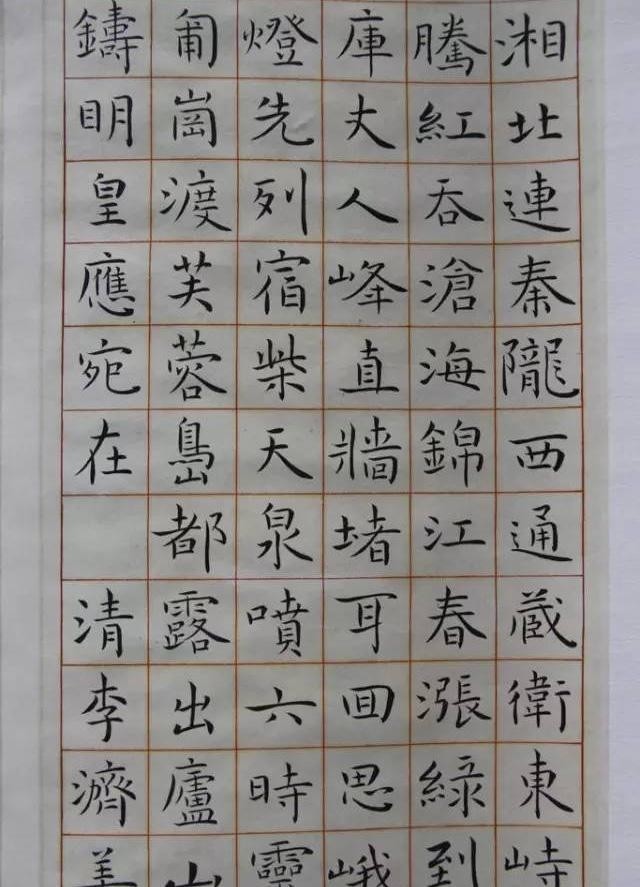 湘北連秦隴西通藏衛東峙
騰紅吞滄海錦江春漲綠到
庫丈人峰直牆堵耳囬思峨
燈先列宿柴天泉噴六時靈
崗渡芙蓉島都露出廬山
鑄眀皇應宛在 清李濟